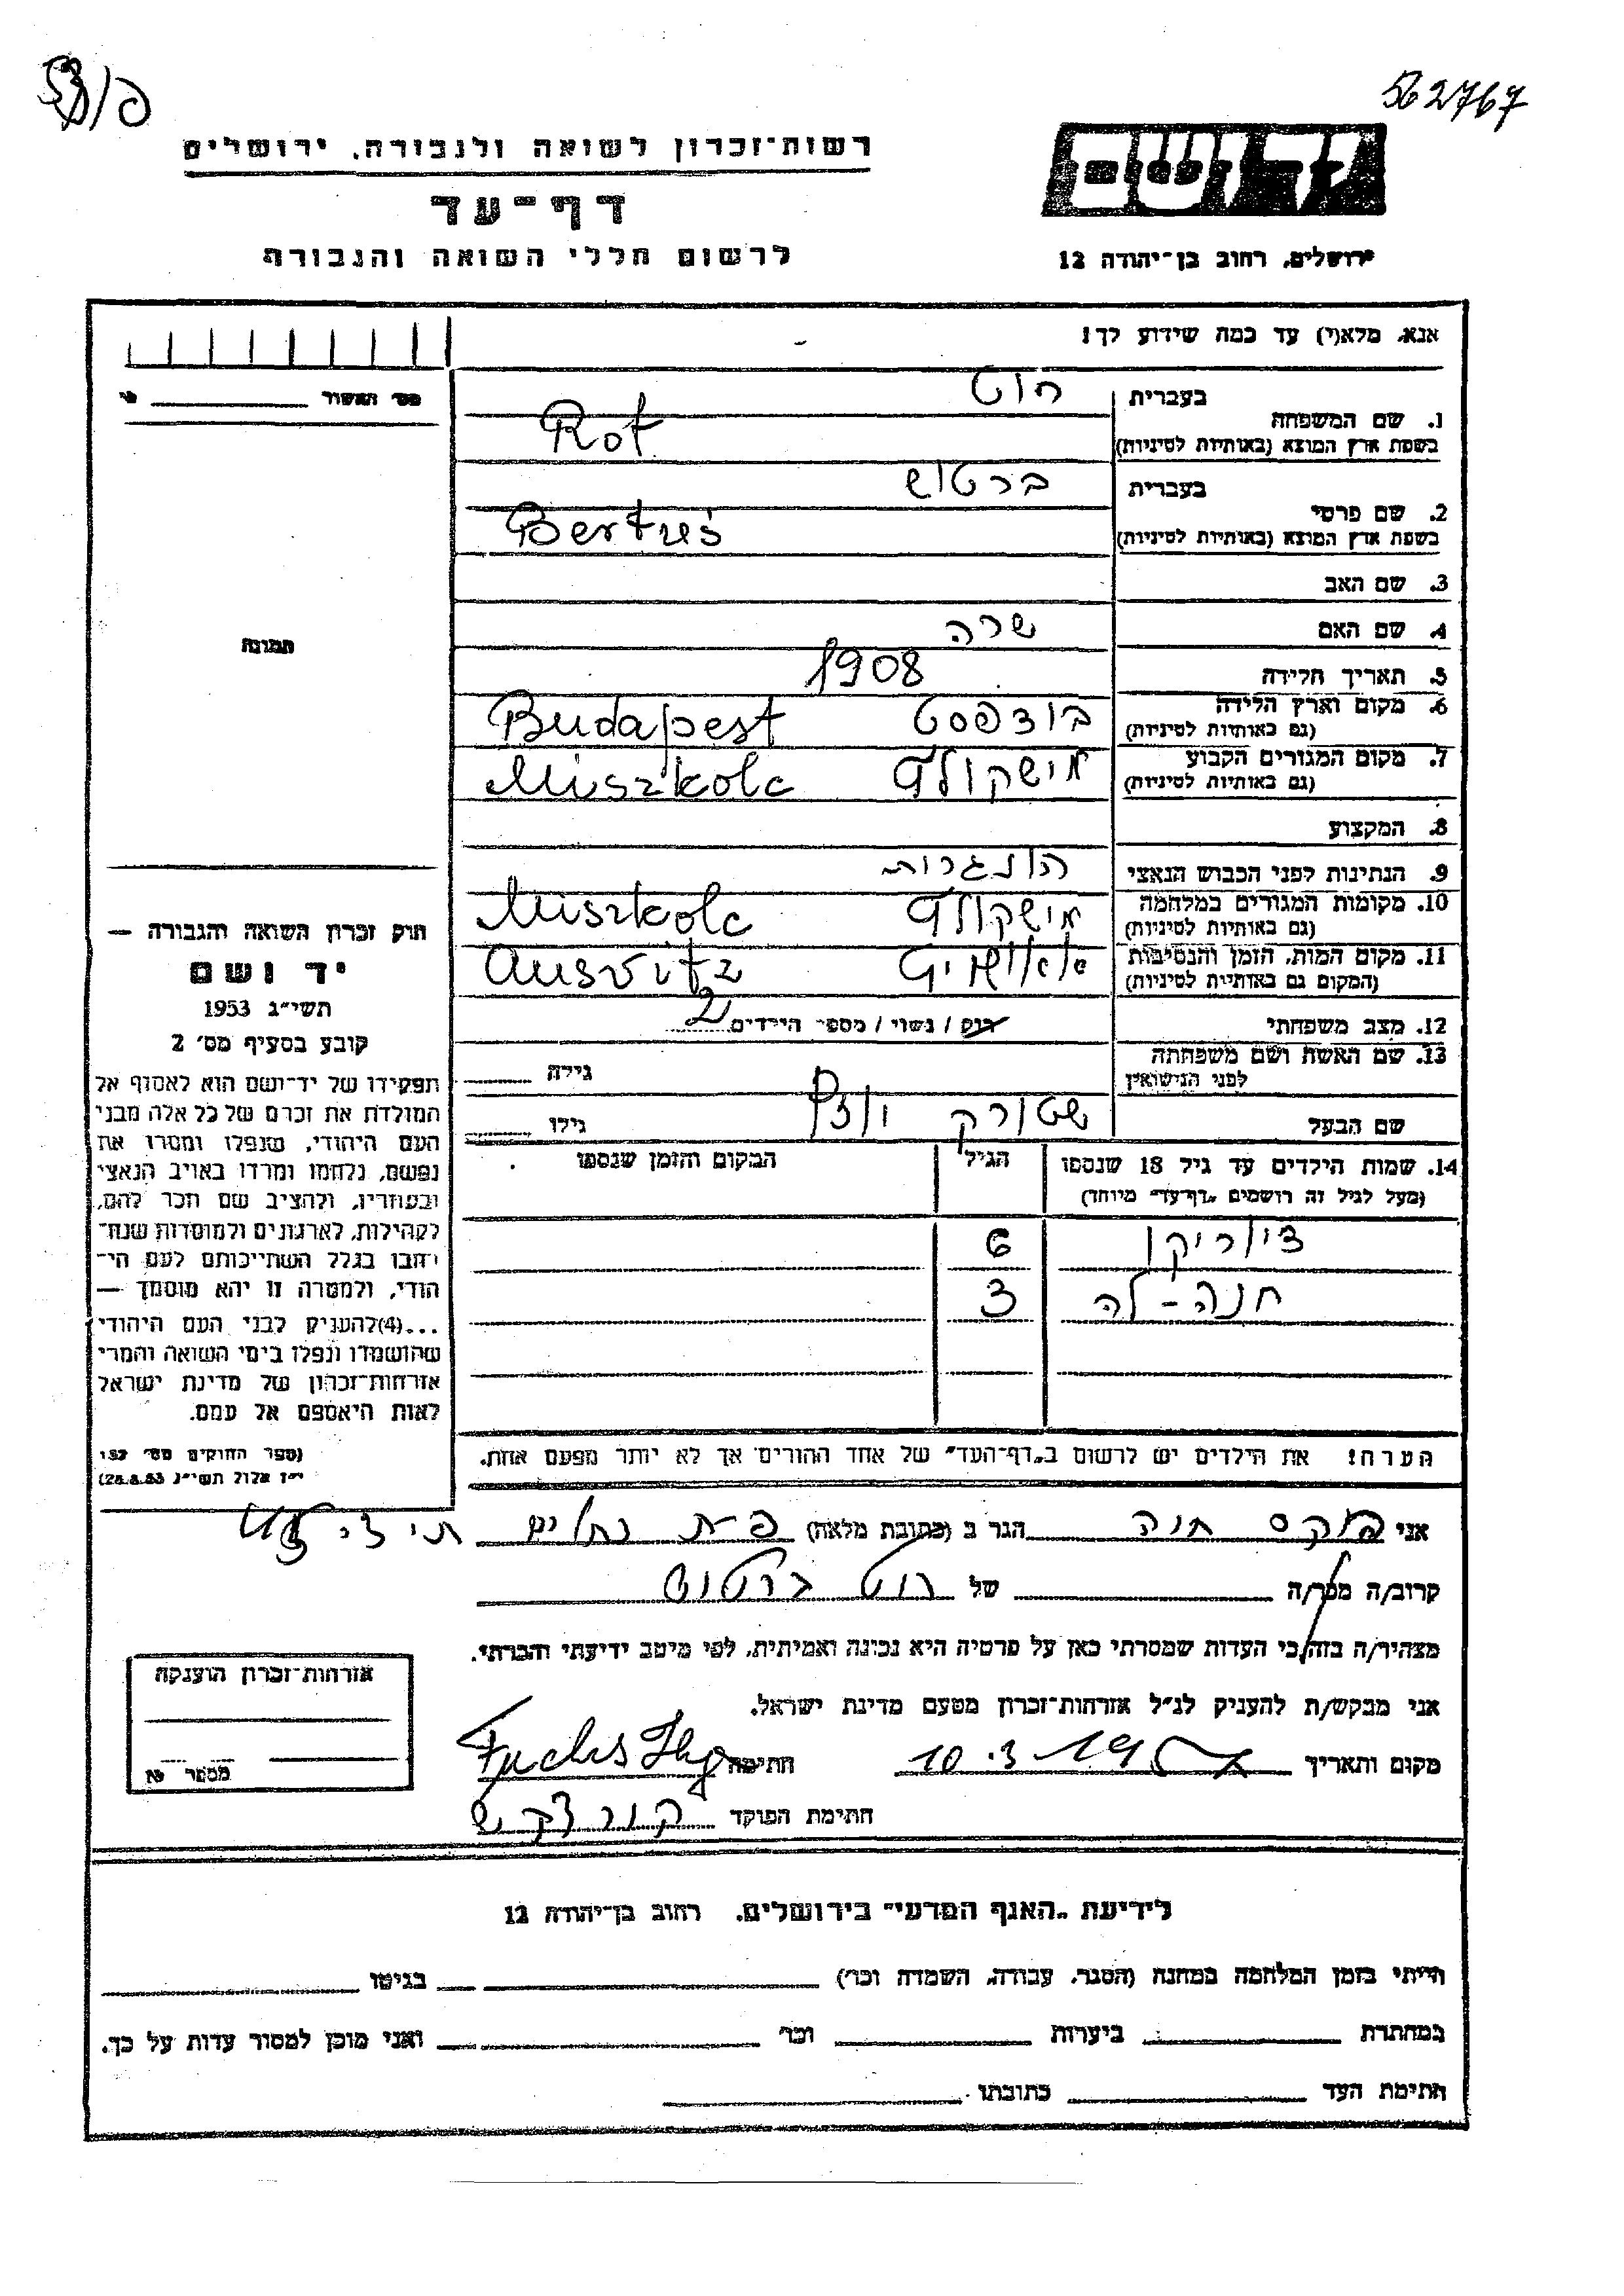 562767
רשות־זכרון לשואה ולגבורה, ירושלים
דף־עד
לרשום חללי השואה והגבורה
ירושלים, רחוב בן־יהודה 12
אנא, מלא(י) עד כמה שידוע לך!
בעברית רוט
1. שם המשפחה
בשפת ארץ המוצא (באותיות לטיניות) Rot
בעברית ברטוש
2. שם פרטי
בשפת ארץ המוצא (באותיות לטיניות) Bertuś
3. שם האב
4. שם האם שרה
5. תאריך הלידה 1908
6. מקום וארץ הלידה בודפסט Budapest
(גם באותיות לטיניות)
7. מקום המגורים הקבוע מישקולץ Miszkolc
(גם באותיות לטיניות)
8. המקצוע
9. הנתינות לפני הכבוש הנאצי הונגרות
10. מקומות המגורים במלחמה מישקולץ Miszkolc
(גם באותיות לטיניות)
11. מקום המות, הזמן והנסיבות Ausvitz
(המקום גם באותיות לטיניות)
12. מצב משפחתי רווק / נשוי / מספר הילדים 2
13. שם האשה ושם משפחתה
לפני הנישואין גילה
שם הבעל שטורק גילו
14. שמות הילדים עד גיל 18 שנספו הגיל המקום והזמן שנספו
(מעל לגיל זה רושמים „דף־עד" מיוחד)
6
חנה-לה 3
הערה! את הילדים יש לרשום ב„דף־העד" של אחד ההורים אך לא יותר מפעם אחת.
מס' האשור
תמונה
חוק זכרון השואה והגבורה —
יד ושם
תשי"ג 1953
קובע בסעיף מס' 2
תפקידו של יד־ושם הוא לאסוף אל
המולדת את זכרם של כל אלה מבני
העם היהודי, שנפלו ומסרו את
נפשם, נלחמו ומרדו באויב הנאצי
ובעוזריו, ולהציב שם וזכר להם,
לקהילות, לארגונים ולמוסדות שנח־
רבו בגלל השתייכותם לעם הי־
הודי, ולמטרה זו יהא מוסמך —
...(4) להעניק לבני העם היהודי
שהושמדו ונפלו בימי השואה והמרי
אזרחות־זכרון של מדינת ישראל
לאות היאספם אל עמם.
(ספר החוקים מס' 132
י"ז אלול תשי"ג 28.8.53)
אני פוקס חנה הגר ב (כתובת מלאה)
קרוב/ה מכר/ה של רוט ברטוש
מצהיר/ה בזה כי העדות שמסרתי כאן על פרטיה היא נכונה ואמיתית, לפי מיטב ידיעתי והכרתי.
אני מבקש/ת להעניק לנ"ל אזרחות־זכרון מטעם מדינת ישראל.
מקום ותאריך 10.3.19 חתימה Fuchs
חתימת הפוקד
אזרחות־זכרון הוענקה
מספר
לידיעת „האגף המדעי" בירושלים, רחוב בן־יהודה 12
הייתי בזמן המלחמה במחנה (הסגר, עבודה, השמדה וכו') בגיטו
במחתרת ביערות וכו' ואני מוכן למסור עדות על כך.
חתימת העד כתובתו